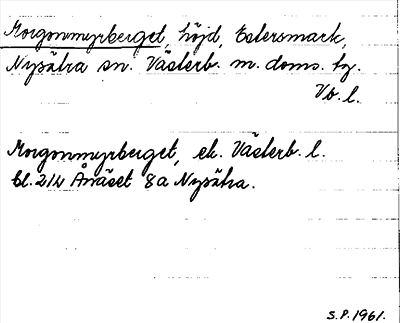 Morgonmyrberget, höjd, Estersmark,
Nysätra sn. Västerb. m. doms. tg.
Vb. l.
Morgonmyrberget, ek. Västerb. l.
bl. 214 Ånäset 8a Nysätra.
S.P. 1961.